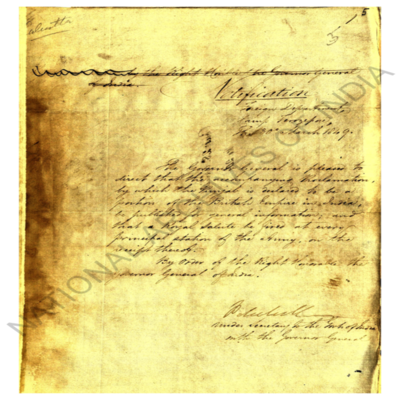 by the Right Hon'ble the Governor General
of India
Notification
Foreign Department
Camp Ferozepore
The 30th March 1849.
The Governor General is pleased to
direct that the accompanying Proclamation,
by which the Punjab is declared to be a
portion of the British Empire in India,
be published for general information, and
that a Royal Salute be fired at every
principal station of the Army, on the
receipt thereof.
By Order of the Right Honorable the
Governor General of India.
Under Secretary to the Govt. of India
with the Governor General
NATIONAL ARCHIVES OF INDIA